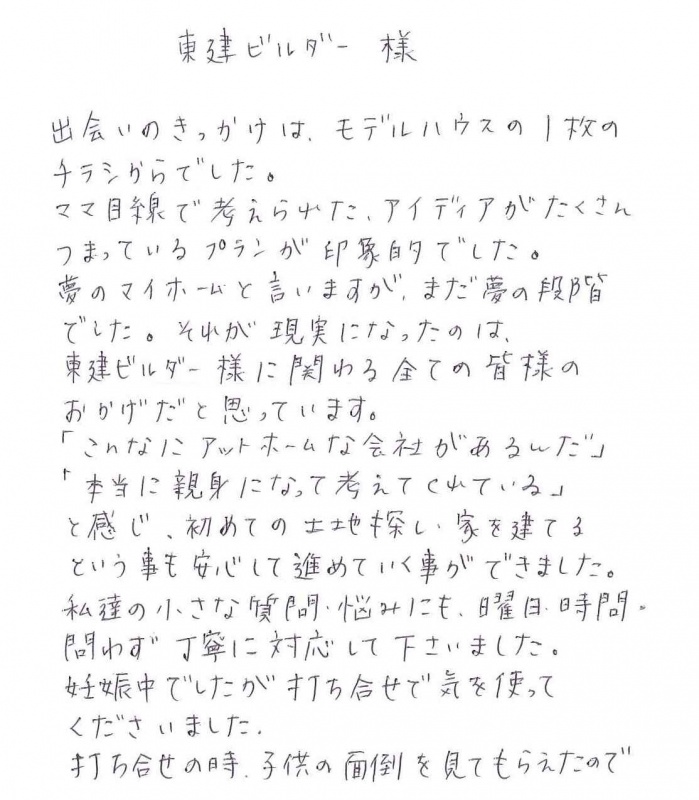 東建ビルダー 様
出会いのきっかけは、モデルハウスの1枚の
チラシからでした。
ママ目線で考えられた、アイディアがたくさん
つまっているプランが印象的でした。
夢のマイホームと言いますが、まだ夢の段階
でした。それが現実になったのは、
東建ビルダー様に関わる全ての皆様の
おかげだと思っています。
「こんなにアットホームな会社があるんだ」
「本当に親身になって考えてくれている」
と感じ、初めての土地探し、家を建てる
という事も安心して進めていく事ができました。
私達の小さな質問・悩みにも、曜日・時間・
問わず丁寧に対応して下さいました。
妊娠中でしたが打ち合せで気を使って
くださいました。
打ち合せの時、子供の面倒を見てもらえたので